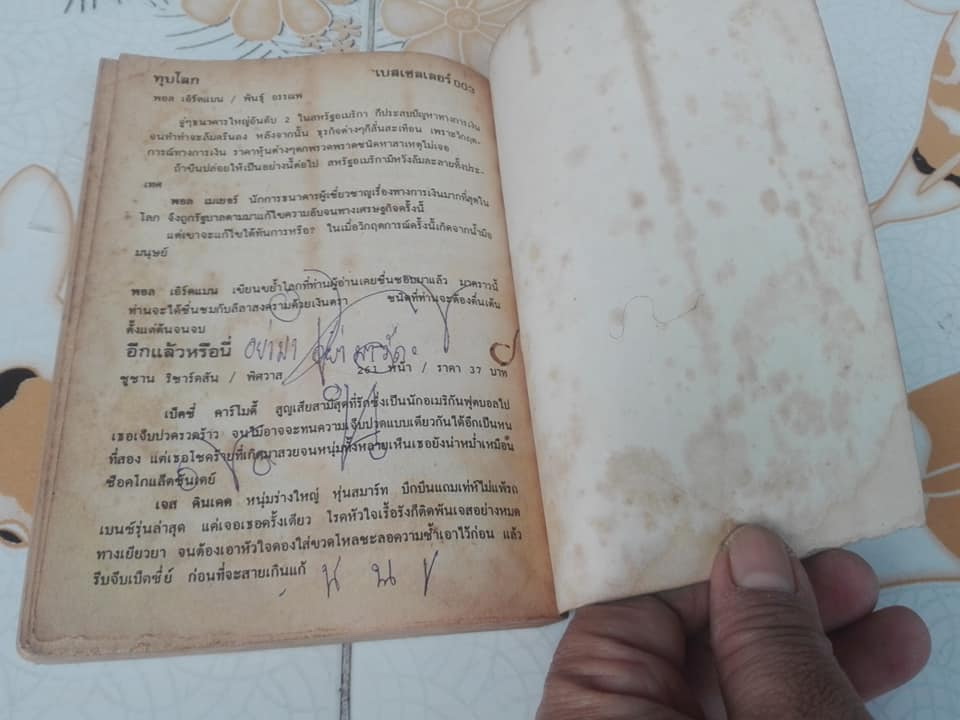 ทุบโลก เบสเซลเลอร์ 003
พอล เอิร์ดแมน / พันธุ์ อรรณพ
จู่ๆธนาคารใหญ่อันดับ 2 ในสหรัฐอเมริกา ก็ประสบปัญหาทางการเงิน
จนทำท่าจะล้มครืนลง หลังจากนั้น ธุรกิจต่างๆก็สั่นสะเทือน เพราะวิกฤต-
การณ์ทางการเงิน ราคาหุ้นต่างๆตกพรวดพราดชนิดหาสาเหตุไม่เจอ
ถ้าขืนปล่อยให้เป็นอย่างนี้ต่อไป สหรัฐอเมริกามีหวังล้มละลายทั้งประ-
เทศ
พอล เมเยอร์ นักการธนาคารผู้เชี่ยวชาญเรื่องทางการเงินมากที่สุดใน
โลก จึงถูกรัฐบาลตามมาแก้ไขความอับจนทางเศรษฐกิจครั้งนี้
แต่เขาจะแก้ไขได้ทันการหรือ? ในเมื่อวิกฤตการณ์ครั้งนี้เกิดจากน้ำมือ
มนุษย์
พอล เอิร์ดแมน เขียนขย้ำโลกที่ท่านผู้อ่านเคยชื่นชอบมาแล้ว มาคราวนี้
ท่านจะได้ชื่นชมกับลีลาสงครามด้วยเงินตรา ชนิดที่ท่านจะต้องตื่นเต้น
ตั้งแต่ต้นจนจบ
อีกแล้วหรือนี่ อย่ามา อย่า
ซูซาน ริชาร์ดสัน / พิศวาส 261 หน้า / ราคา 37 บาท
เบ็ตซี่ คาร์โมดี้ สูญเสียสามีสุดที่รักซึ่งเป็นนักอเมริกันฟุตบอลไป
เธอเจ็บปวดรวดร้าว จนไม่อาจจะทนความเจ็บปวดแบบเดียวกันได้อีกเป็นหน
ที่สอง แต่เธอโชคร้ายที่เกิดมาสวยจนหนุ่มทั้งหลายเห็นเธอยังน่าหม่ำเหมือน
ช็อคโกแล็ตซันเดย์
เจส คินเคด หนุ่มร่างใหญ่ หุ่นสมาร์ท บึกบึนแถมเท่ห์ไม่แพ้รถ
เบนซ์รุ่นล่าสุด แต่เจอเธอครั้งเดียว โรคหัวใจเรื้อรังก็ติดพันเจสอย่างหมด
ทางเยียวยา จนต้องเอาหัวใจดองใส่ขวดโหลชะลอความช้ำเอาไว้ก่อน แล้ว
รีบจีบเบ็ตซี่ย์ ก่อนที่จะสายเกินแก้ น น